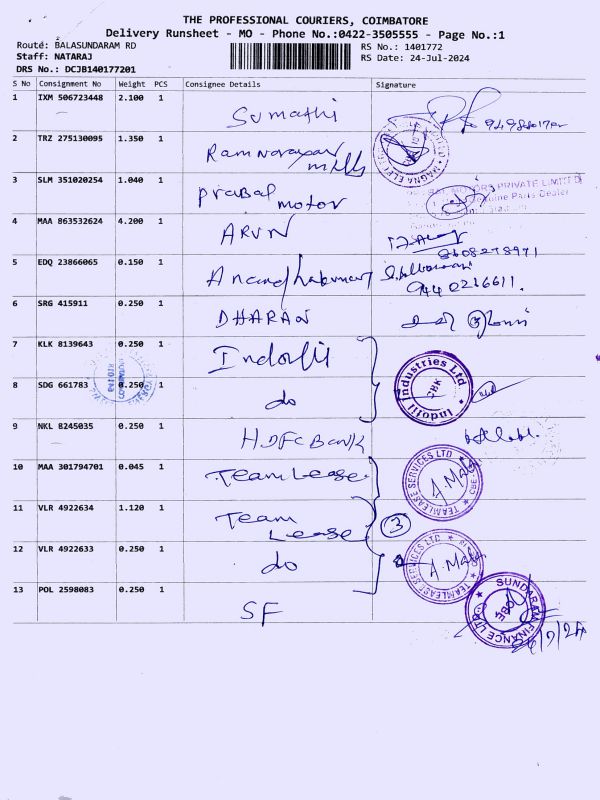 THE PROFESSIONAL COURIERS, COIMBATORE
Delivery Runsheet - MO - Phone No.:0422-3505555 - Page No.:1
Route: BALASUNDARAM RD RS No.: 1401772
Staff: NATARAJ RS Date: 24-Jul-2024
DRS No.: DCJB140177201
S No Consignment No Weight PCS Consignee Details Signature
1 IXM 506723448 2.100 1 Sumathi
2 TRZ 275130095 1.350 1 Ramnarayan mills
3 SLM 351020254 1.040 1 prabal motor
MOTORS PRIVATE LIMITED
4 MAA 863532624 4.200 1 ARUN
5 EDQ 23866065 0.150 1 Anandhakumar
6 SRG 415911 0.250 1 DHARAN
7 KLK 8139643 0.250 1 Indofil
Indofil Industries Ltd CBK
8 SDG 661783 0.250 1 do
9 NKL 8245035 0.250 1 HDFC Bank
10 MAA 301794701 0.045 1 Team Lease
TEAMLEASE SERVICES LTD. CBE A. Mala
11 VLR 4922634 1.120 1 Team Lease 3
12 VLR 4922633 0.250 1 do
TEAMLEASE SERVICES LTD. A. Mala
13 POL 2598083 0.250 1 SF
SUNDARAM FINANCE LTD